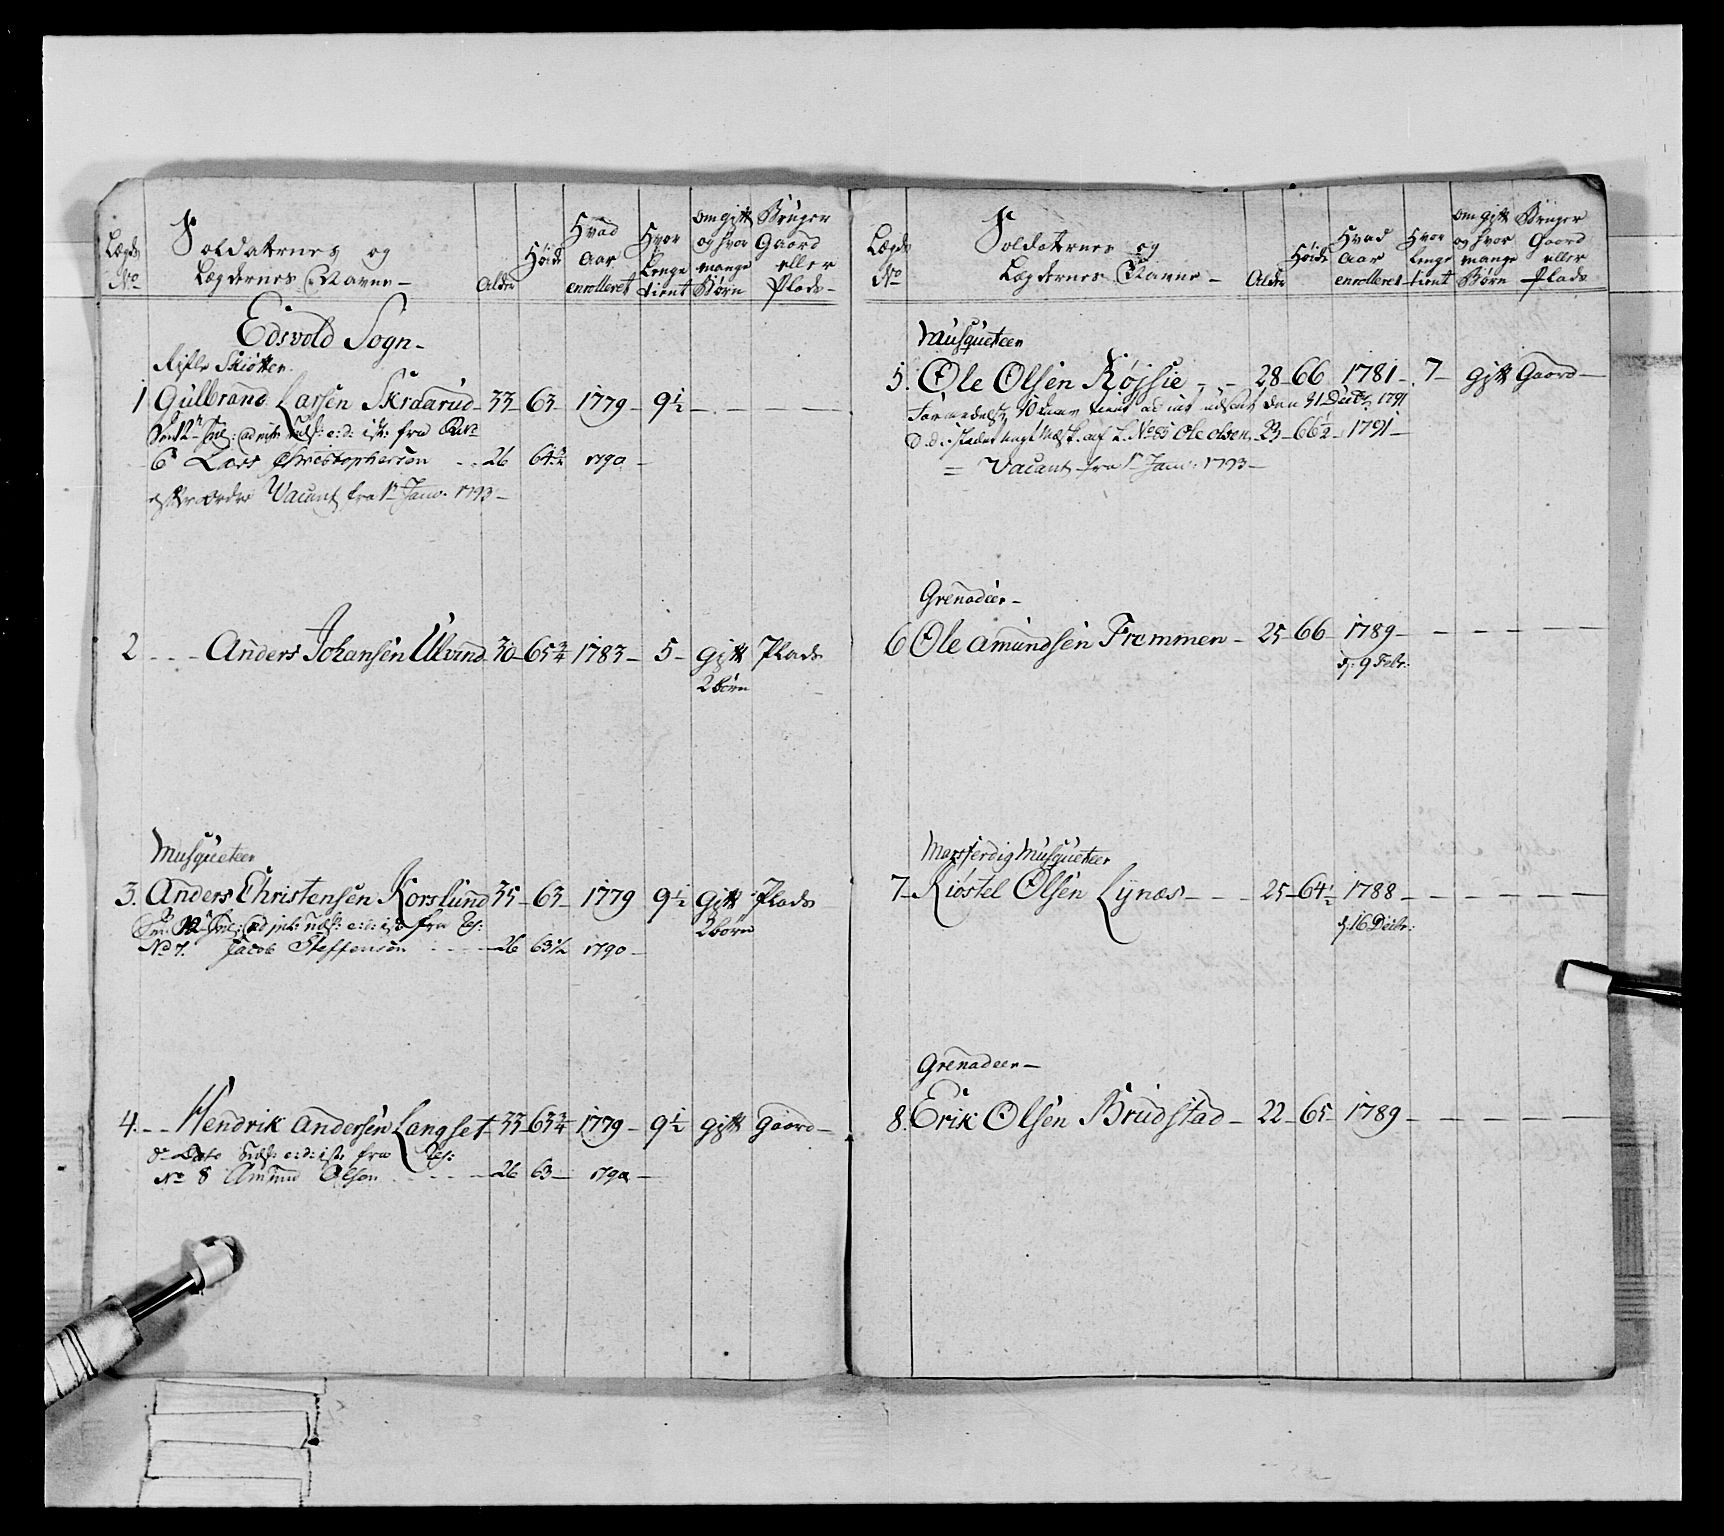 Lægds No
Soldaternes og Lægdernes Navne
Alder
Høide
Hvad Aar enrolleret
Hvor Lenge tient
om gift og hvor mange Børn
Bruger Gaard eller Plads
Edsvold Sogn
Rifle Skiøtter
1 Gulbrand Larsen Skraarud 33 63 1779 9½
6 Lars Christophersen 26 64¾ 1790
efter ordre Vacant fra 1 Janv: 1793
2 Anders Johansen Ulvind 30 65¾ 1783 5 gift Plads
2 børn
Musqueteer
3. Anders Christensen Korslund 35 63 1779 9½ gift Plads
2 børn
No 7. Jacob Steffensen 26 63½ 1790
4. Hendrik Andersen Langset 33 63¾ 1779 9½ gift Gaard
No 8 Amund Olsen 26 63 1790
Lægds No
Soldaternes og Lægdernes Navne
Alder
Høide
Hvad Aar enrolleret
Hvor Lenge tient
om gift og hvor mange Børn
Bruger Gaard eller Plads
Musqueteer
5. Ole Olsen Røjsie 28 66 1781 7 gift Gaard
den 31 Decbr 1791
Ole Olsen 23 66½ 1791
= Vacant fra 1 Janv: 1793
Grenadeer
6 Ole Amundsen Fremmen 25 66 1789
d: 9 Febr:
Marsferdig Musqueteer
7 Kiøstel Olsen Lynæs 25 64½ 1788
d. 16 Decbr:
Grenadeer
8. Erik Olsen Brudstad 22 65 1789